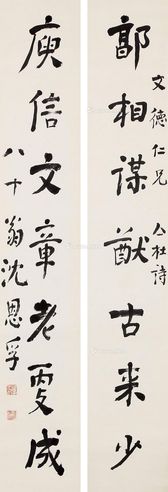 郭相謀猷古来少
文德仁兄 亼杜詩
庾信文章老更成
八十翁沈恩孚